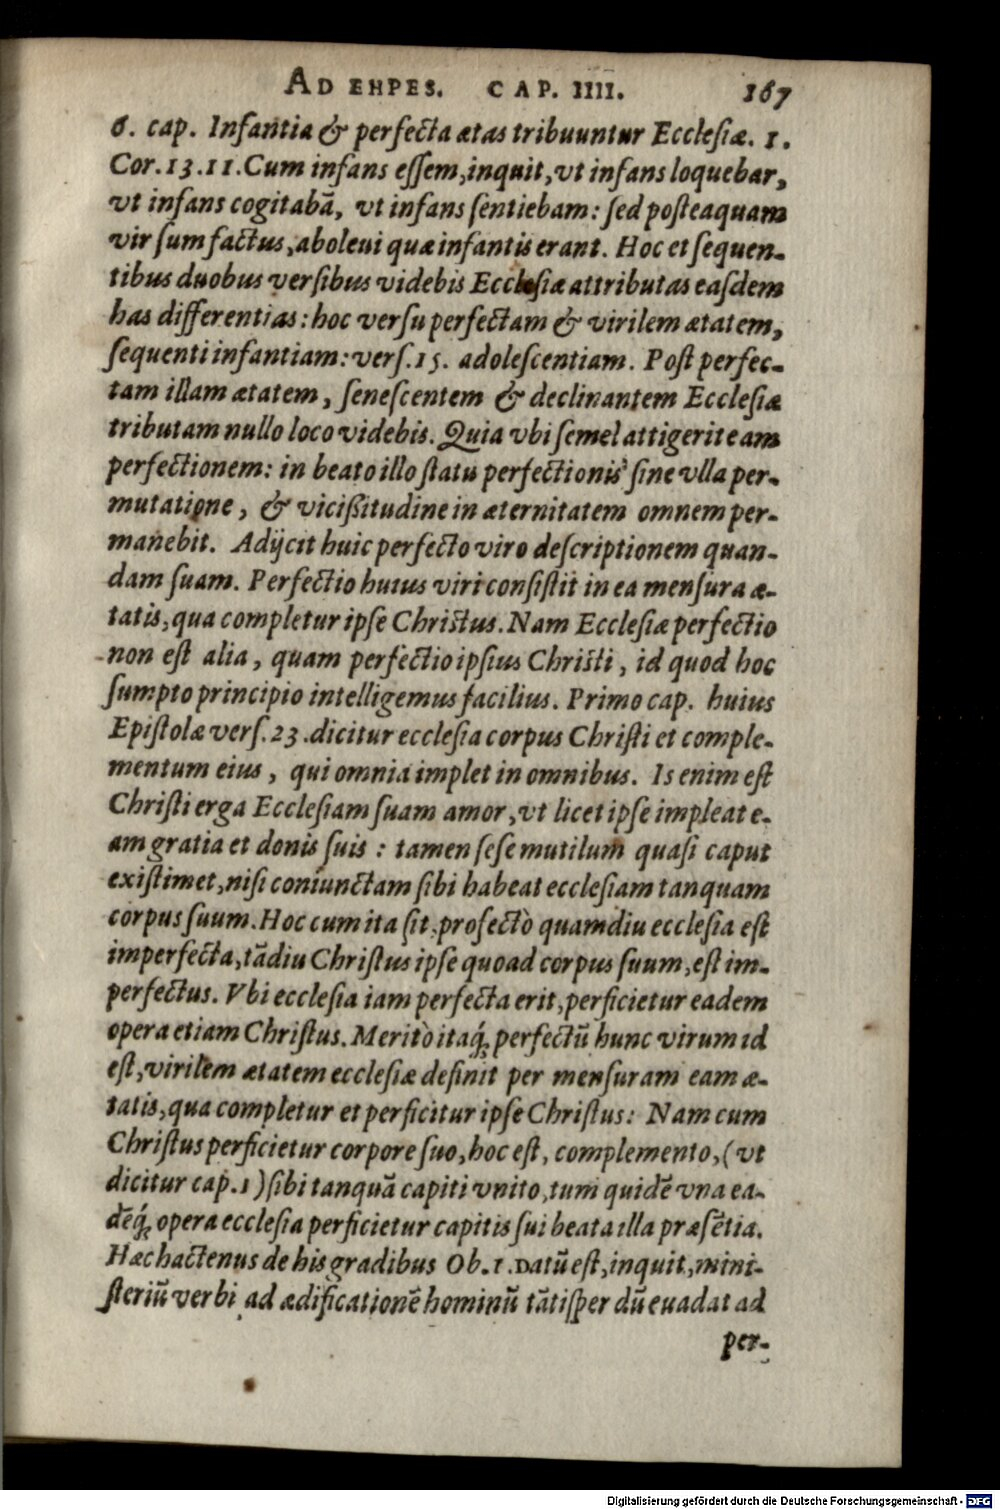 AD EHPES. CAP. IIII. 167
6. cap. Infantia & perfecta ætas tribuuntur Ecclesiæ. 1.
Cor. 13. 11. Cum infans eſſem, inquit, vt infans loquebar,
vt infans cogitabā, vt infans ſentiebam: ſed poſteaquam
vir ſum factus, aboleui quæ infantis erant. Hoc et ſequen-
tibus duobus verſibus videbis Eccleſiæ attributas eaſdem
has differentias: hoc verſu perfectam & virilem ætatem,
ſequenti infantiam: verſ. 15. adoleſcentiam. Poſt perfec-
tam illam ætatem, ſeneſcentem & declinantem Eccleſiæ
tributam nullo loco videbis. Quia vbi ſemel attigerit eam
perfectionem: in beato illo ſtatu perfectionis ſine vlla per-
mutatione, & viciſſitudine in æternitatem omnem per-
manebit. Adijcit huic perfecto viro deſcriptionem quan-
dam ſuam. Perfectio huius viri conſiſtit in ea menſura æ-
tatis, qua completur ipſe Chriſtus. Nam Eccleſiæ perfectio
non eſt alia, quam perfectio ipſius Chriſti, id quod hoc
ſumpto principio intelligemus facilius. Primo cap. huius
Epiſtolæ verſ. 23. dicitur eccleſia corpus Chriſti et comple-
mentum eius, qui omnia implet in omnibus. Is enim eſt
Chriſti erga Eccleſiam ſuam amor, vt licet ipſe impleat e-
am gratia et donis ſuis: tamen ſeſe mutilum quaſi caput
exiſtimet, niſi coniunctam ſibi habeat eccleſiam tanquam
corpus ſuum. Hoc cum ita ſit, profectò quamdiu eccleſia eſt
imperfecta, tādiu Chriſtus ipſe quoad corpus ſuum, eſt im-
perfectus. Vbi eccleſia iam perfecta erit, perficietur eadem
opera etiam Chriſtus. Meritò itaq́; perfectū hunc virum id
eſt, virilem ætatem eccleſiæ definit per menſuram eam æ-
tatis, qua completur et perficitur ipſe Chriſtus: Nam cum
Chriſtus perficietur corpore ſuo, hoc eſt, complemento, (vt
dicitur cap. 1) ſibi tanquā capiti vnito, tum quidē vna ea-
dēq́; opera eccleſia perficietur capitis ſui beata illa præſētia.
Hæc hactenus de his gradibus Ob. 1. Datū eſt, inquit, mini-
ſteriū verbi ad ædificationē hominū tātiſper dū euadat ad
per-
Digitalisierung gefördert durch die Deutsche Forschungsgemeinschaft - DFG